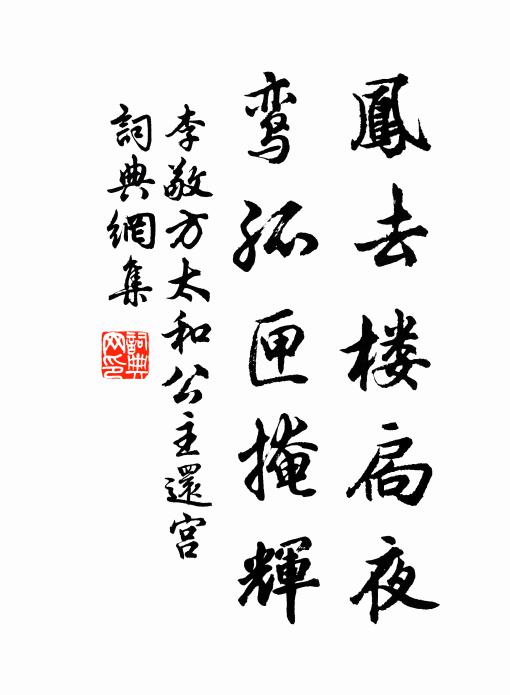 鳳去楼扃夜
鸾孤匣掩輝
李敬方太和公主還宫
詞典網集
詞典網印